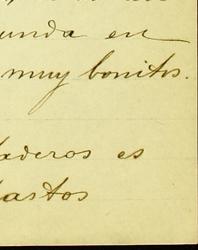 unda en
muy bonitos.
aderos es
bastos